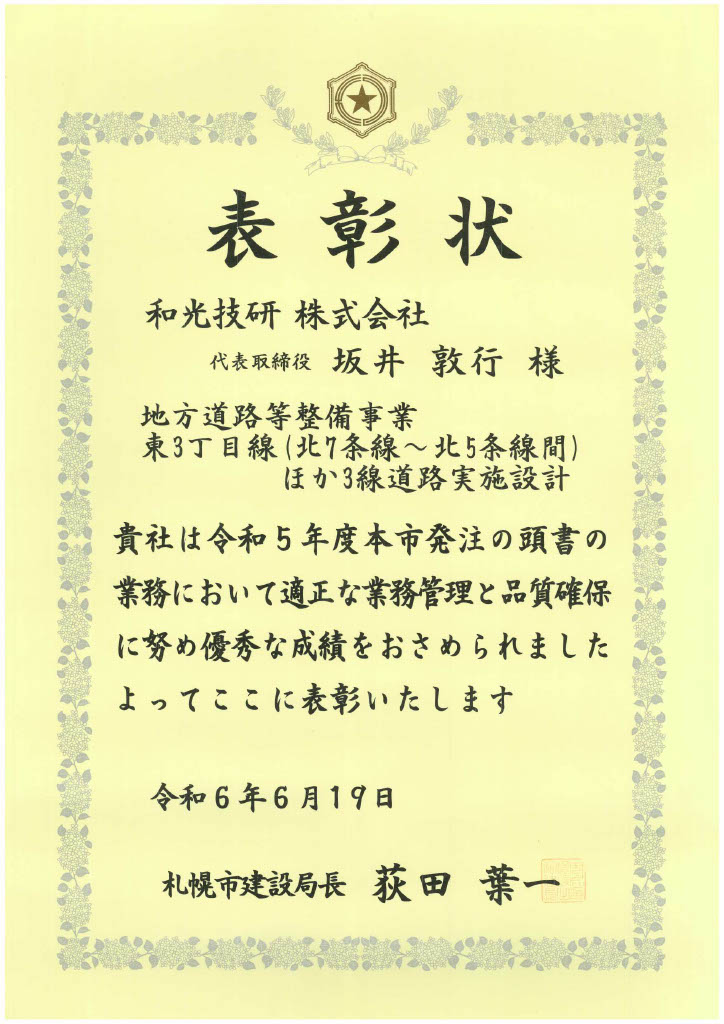 表彰状
和光技研 株式会社
代表取締役 坂井 敦行 様
地方道路等整備事業
東3丁目線(北7条線～北5条線間)
ほか3線道路実施設計
貴社は令和5年度本市発注の頭書の
業務において適正な業務管理と品質確保
に努め優秀な成績をおさめられました
よってここに表彰いたします
令和6年6月19日
札幌市建設局長 荻田 葉一